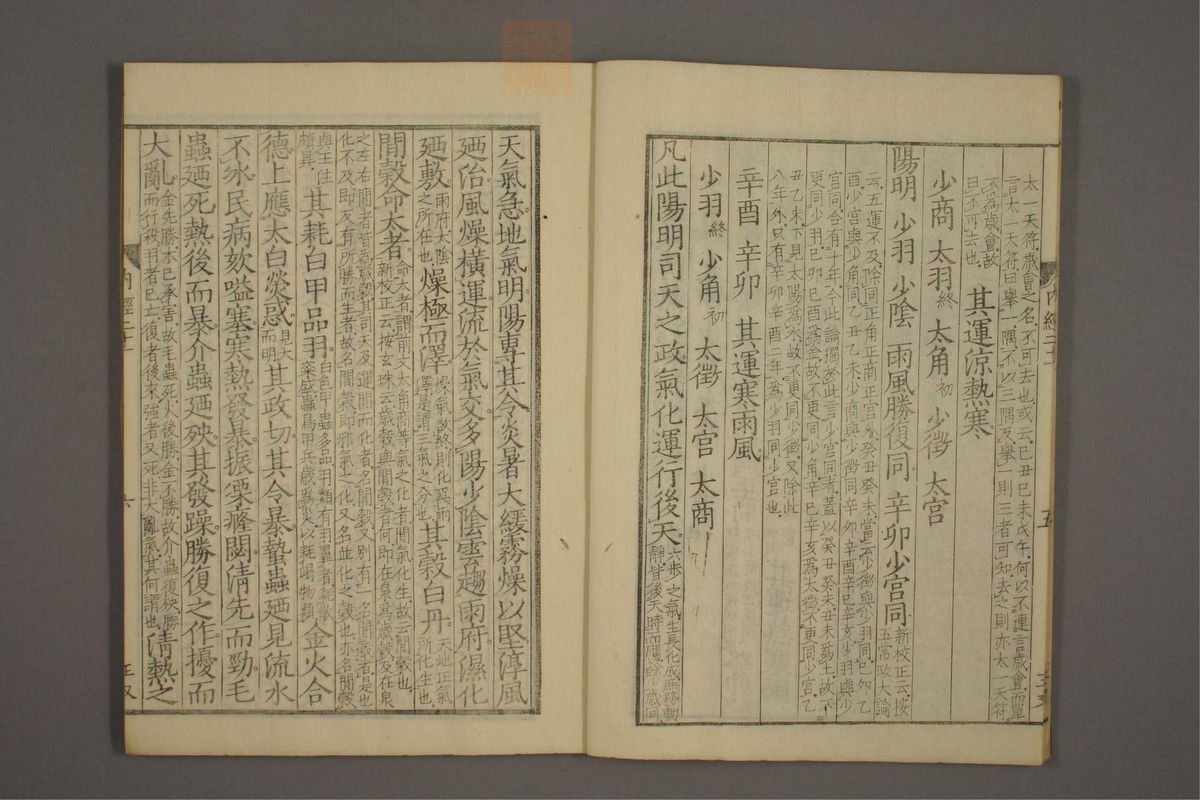 太一天符歲會之名不可去也或云己丑己未戊午何以不連言歲會而單
言太一天符曰舉一隅不以三隅反舉一則三者可知去之則亦太一天符
不為歲會故
曰不可去也
其運涼熱寒
少商 太羽終 太角初 少徵 太宮
陽明 少羽 少陰 雨風勝復同 辛卯少宮同
新校正云按
五常政大論
云五運不及除同正角正商正宮外癸丑癸未當云少徵與少羽同己卯乙
酉少宮與少角同乙丑乙未少商與少徵同辛卯辛酉辛巳辛亥少羽與少
宮同合有十年今此論獨於此言少宮同者蓋以癸丑癸未丑未為土故不
更同少羽己卯己酉為金故不更同少角辛巳辛亥為太徵不更同少宮乙
丑乙未下見太陽為水故不更同少徵又除此
八年外只有辛卯辛酉二年為少羽同少宮也
辛酉 辛卯 其運寒雨風
少羽終 少角初 太徵 太宮 太商
凡此陽明司天之政氣化運行後天
六步之氣生長化成庶務動
靜皆後天時而應餘少歲同
天氣急地氣明陽專其令炎暑大緩霧燥以堅淳風
廼治風燥橫運流於氣交多陽少陰雲趨雨府濕化
廼敷
雨府太陰
之所在也
燥極而澤
燥氣欲終則化為雨
澤是謂三氣之分也
其穀白丹
天地正氣
所化生也
間穀命太者
命太者謂前文太角商等氣之化者間氣化生故云間穀也
新校正云按玄珠云歲穀與間穀者何即在泉為歲穀及在泉
之左右間者皆為歲穀其司天及運間而化者名間穀又別有一名間穀者是也
化不及即反有所勝而生者故名間穀即邪氣之化又名並化之穀也亦名間穀
與王注
頗異
其耗白甲品羽
白色甲蟲多品羽類有羽翼者耗散
粢盛蟲鳥甲兵歲為災以耗竭物類
金火合
德上應太白熒惑
見大
而明
其政切其令暴蟄蟲廼見流水
不冰民病欬嗌塞寒熱發暴振凓癃閟清先而勁毛
蟲廼死熱後而暴介蟲廼殃其發躁勝復之作擾而
大亂
金先勝木已承害故毛蟲死火後勝金不勝故介蟲復殃勝
而行殺羽者已亡復者後來強者又死非大亂氣其何謂也
清熱之
內經二十一
五
內經二十一
六